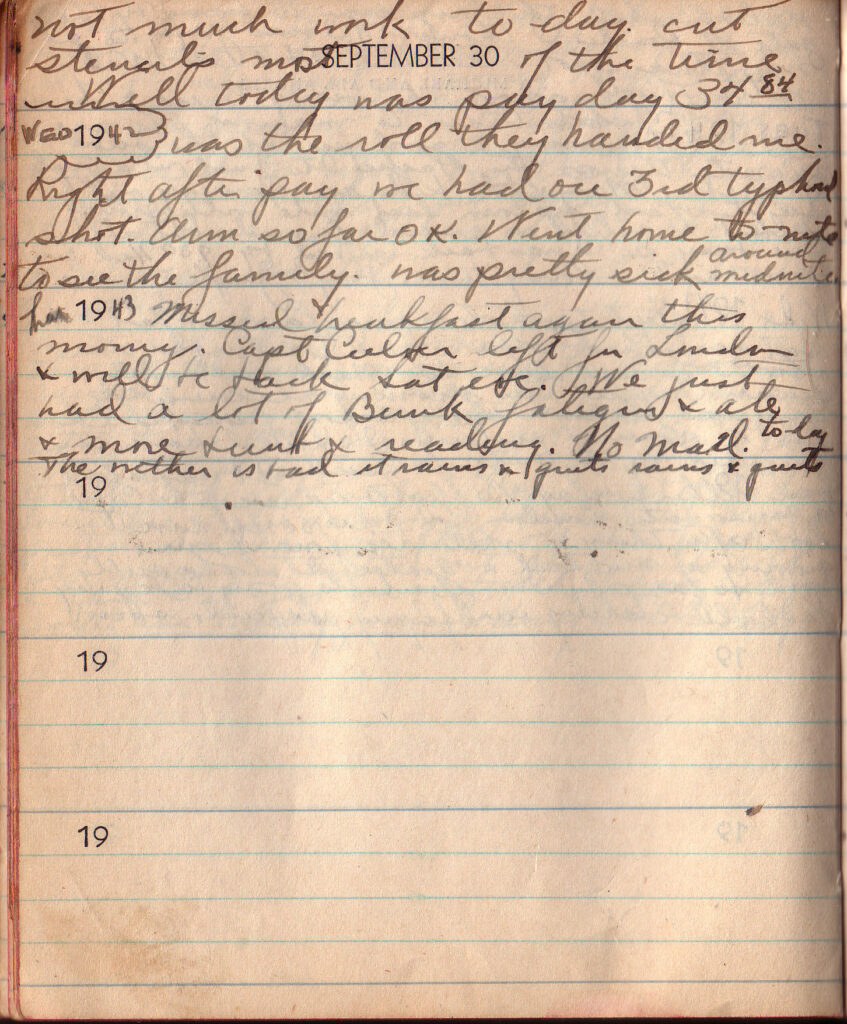 not much work to-day. cut
stencils most of the time
SEPTEMBER 30
Well today was pay day 34 84
Wed 1942 was the roll they handed me.
Right after pay we had our 3rd typhoid
shot. Arm so far OK. Went home to-nite
to see the family. was pretty sick around midnite
1943 Missed breakfast again this
morning. Capt left for London
& will be back Sat eve. We just
had a lot of Bunk fatigue & ate
& more & reading. No Mail. to-day
The wether is bad it rains & quits rains & quits
19
19
19